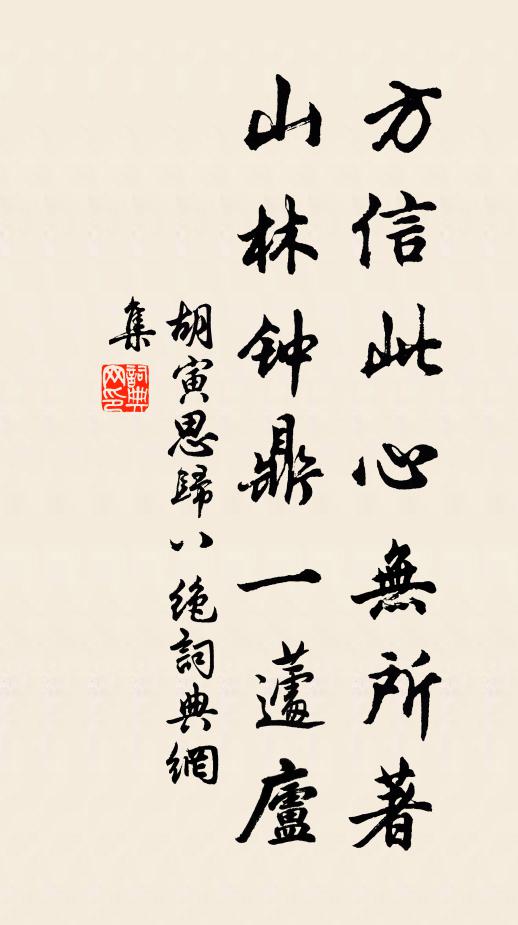 方信此心無所著
山林钟鼎一蘧廬
胡寅思歸八绝詞典網
集
詞典
网印